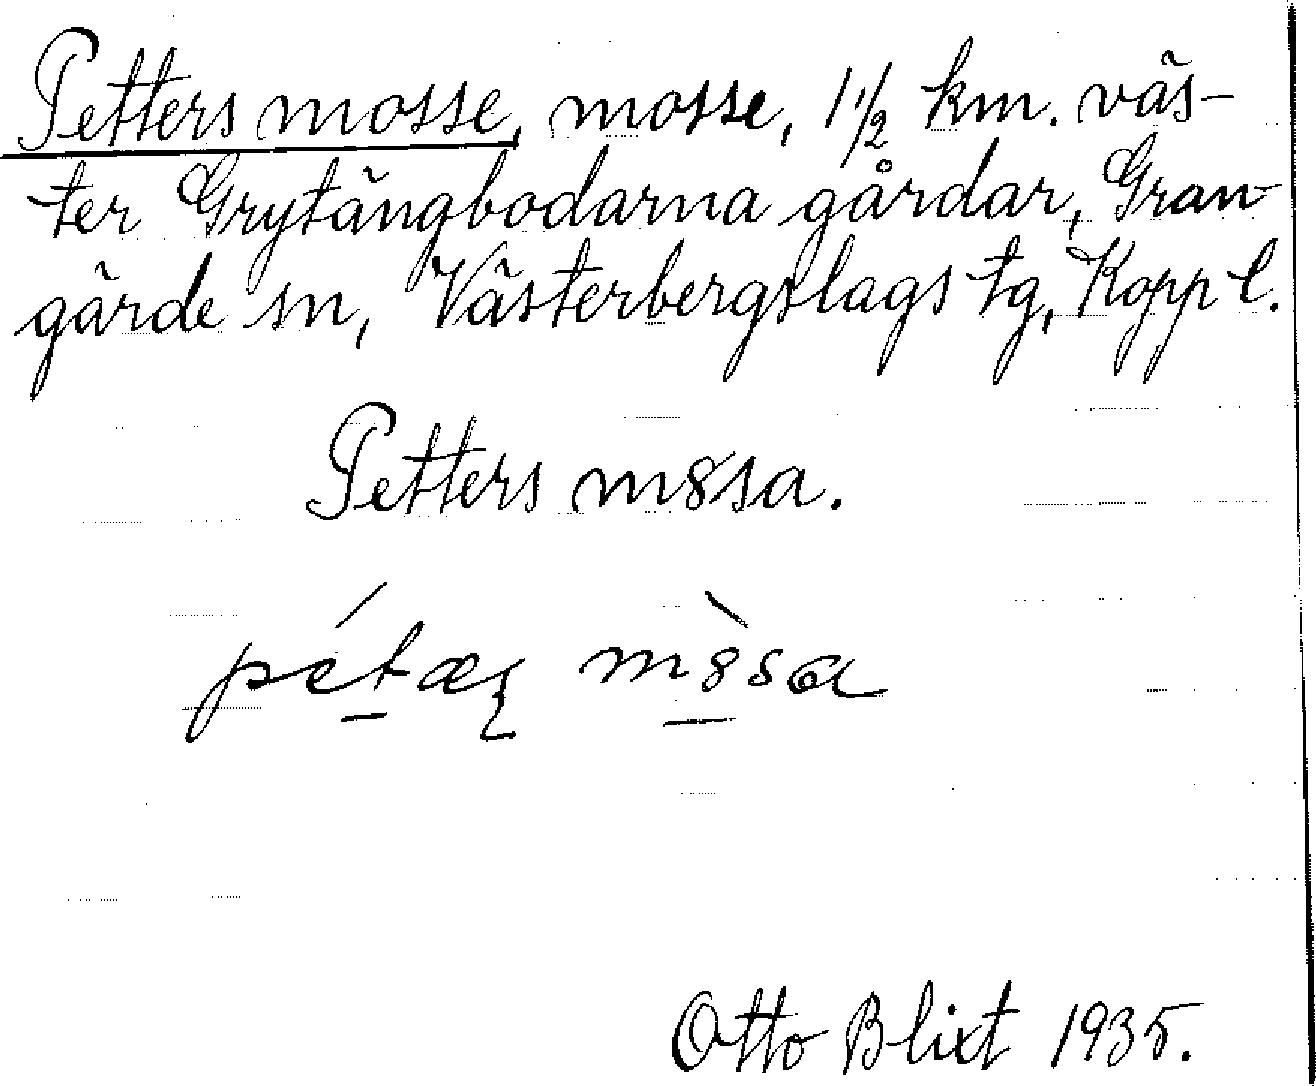 Petters mosse, mosse, 1 1/2 km. väs-
ter Grytängbodarna gårdar, Gran-
gärde sn, Västerbergslags tg, Kopp l.
Petters m8sa.
pétæʂ m8̀sa
Otto Blixt 1935.